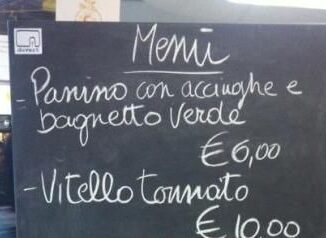 Menù
- Panino con acciughe e
bagnetto verde
€ 6,00
- Vitello tonnato
€ 10,00